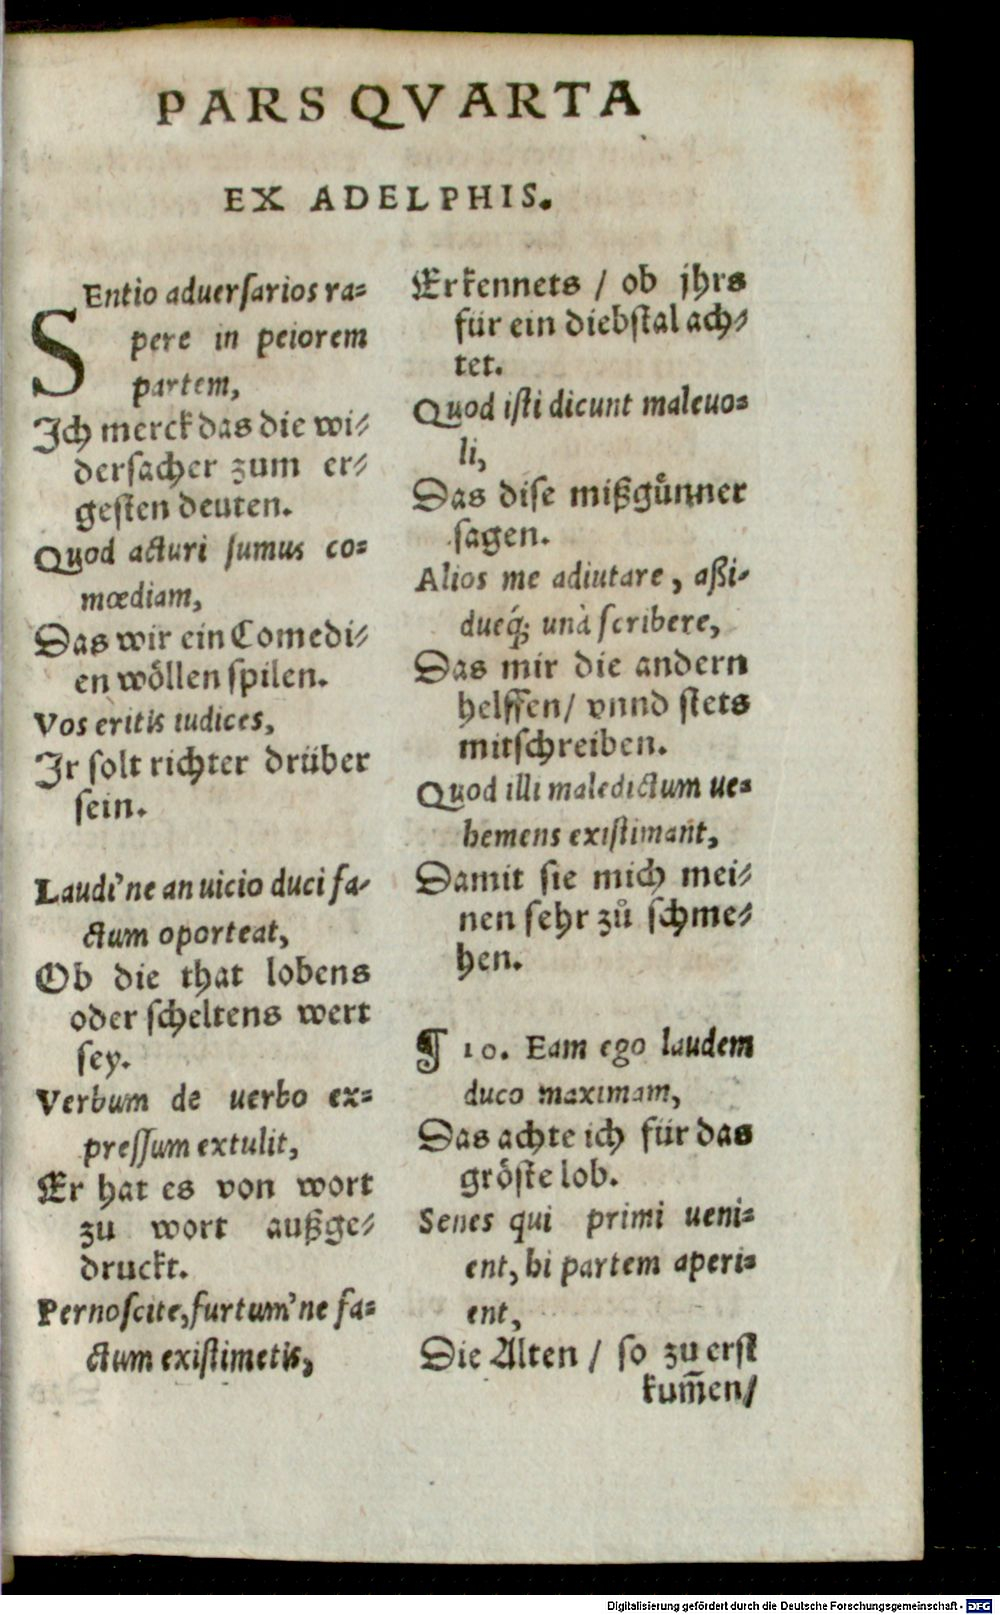 PARS QVARTA
EX ADELPHIS.
SEntio aduerſarios ra⸗
pere in peiorem
partem,
Ich merck das die wi⸗
derſacher zum er⸗
geſten deuten.
Quod acturi ſumus co⸗
mœdiam,
Das wir ein Comedi⸗
en wöllen ſpilen.
Vos eritis iudices,
Ir ſolt richter drüber
ſein.
Laudi'ne an uicio duci fa⸗
ctum oporteat,
Ob die that lobens
oder ſcheltens wert
ſey.
Verbum de uerbo ex⸗
preſſum extulit,
Er hat es von wort
zu wort außge⸗
druckt.
Pernoſcite, furtum'ne fa⸗
ctum exiſtimetis,
Erkennets / ob jhrs
für ein diebſtal ach⸗
tet.
Quod iſti dicunt maleuo⸗
li,
Das diſe mißgünner
ſagen.
Alios me adiutare, aßi⸗
dueq́; unà ſcribere,
Das mir die andern
helffen / vnnd ſtets
mitſchreiben.
Quod illi maledictum ue⸗
hemens exiſtimant,
Damit ſie mich mei⸗
nen ſehr zů ſchme⸗
hen.
¶ 10. Eam ego laudem
duco maximam,
Das achte ich für das
gröſte lob.
Senes qui primi ueni⸗
ent, hi partem aperi⸗
ent,
Die Alten / ſo zu erſt
kum̃en /
Digitalisierung gefördert durch die Deutsche Forschungsgemeinschaft - DFG